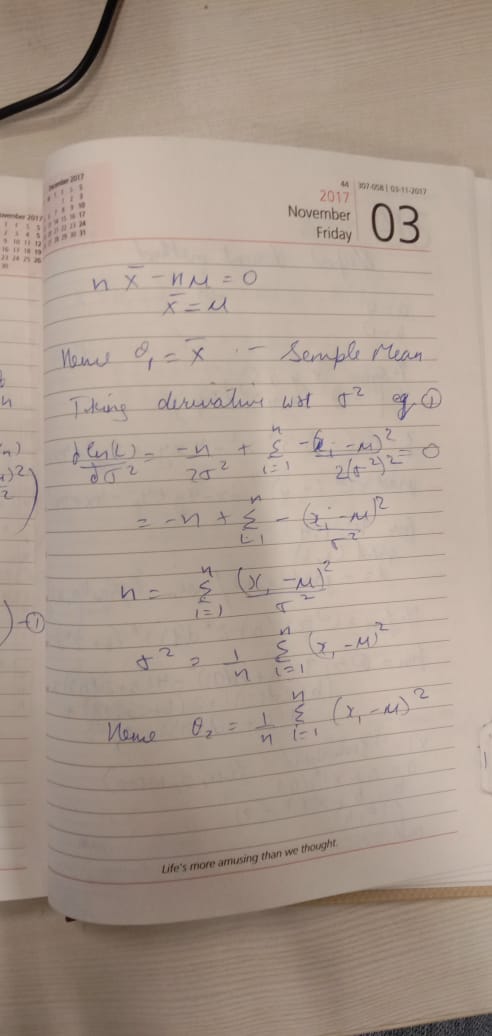 December 2017
November 2017
44 307-058 | 03-11-2017
2017
November
Friday
03
n x̄ - nμ = 0
x̄ = μ
Hence θ₁ = x̄ - Sample Mean
Taking derivative wrt σ² eq. ①
d ln(L)/dσ² = -n/2σ² + Σⁿᵢ₌₁ -(xᵢ - μ)²/2(σ²)² = 0
= -n + Σⁿᵢ₌₁ - (xᵢ - μ)²/σ²
n = Σⁿᵢ₌₁ (xᵢ - μ)²/σ²
-①
σ² = 1/n Σⁿᵢ₌₁ (xᵢ - μ)²
Hence θ₂ = 1/n Σⁿᵢ₌₁ (xᵢ - μ)²
Life's more amusing than we thought.